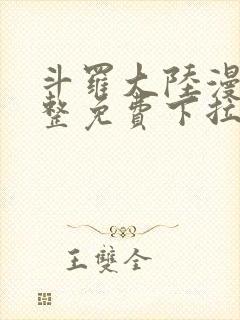 斗羅大陸漫
整免費下拉
王雙全